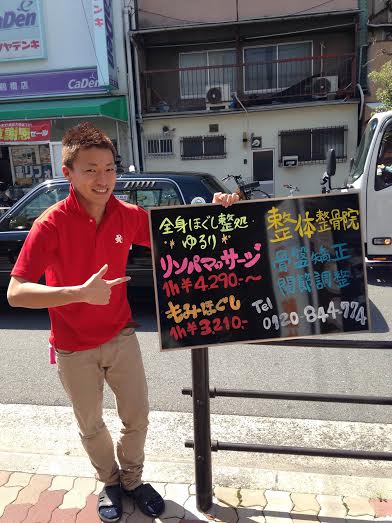 CaDen
ヤデンキ
CaDen
橋店
SALE
全身ほぐし整処
ゆるり
リンパマッサージ
1h ¥4.290-〜
もみほぐし
1h ¥3,210-
整体整骨院
骨盤矯正
関節調整
Tel
0120-844-774